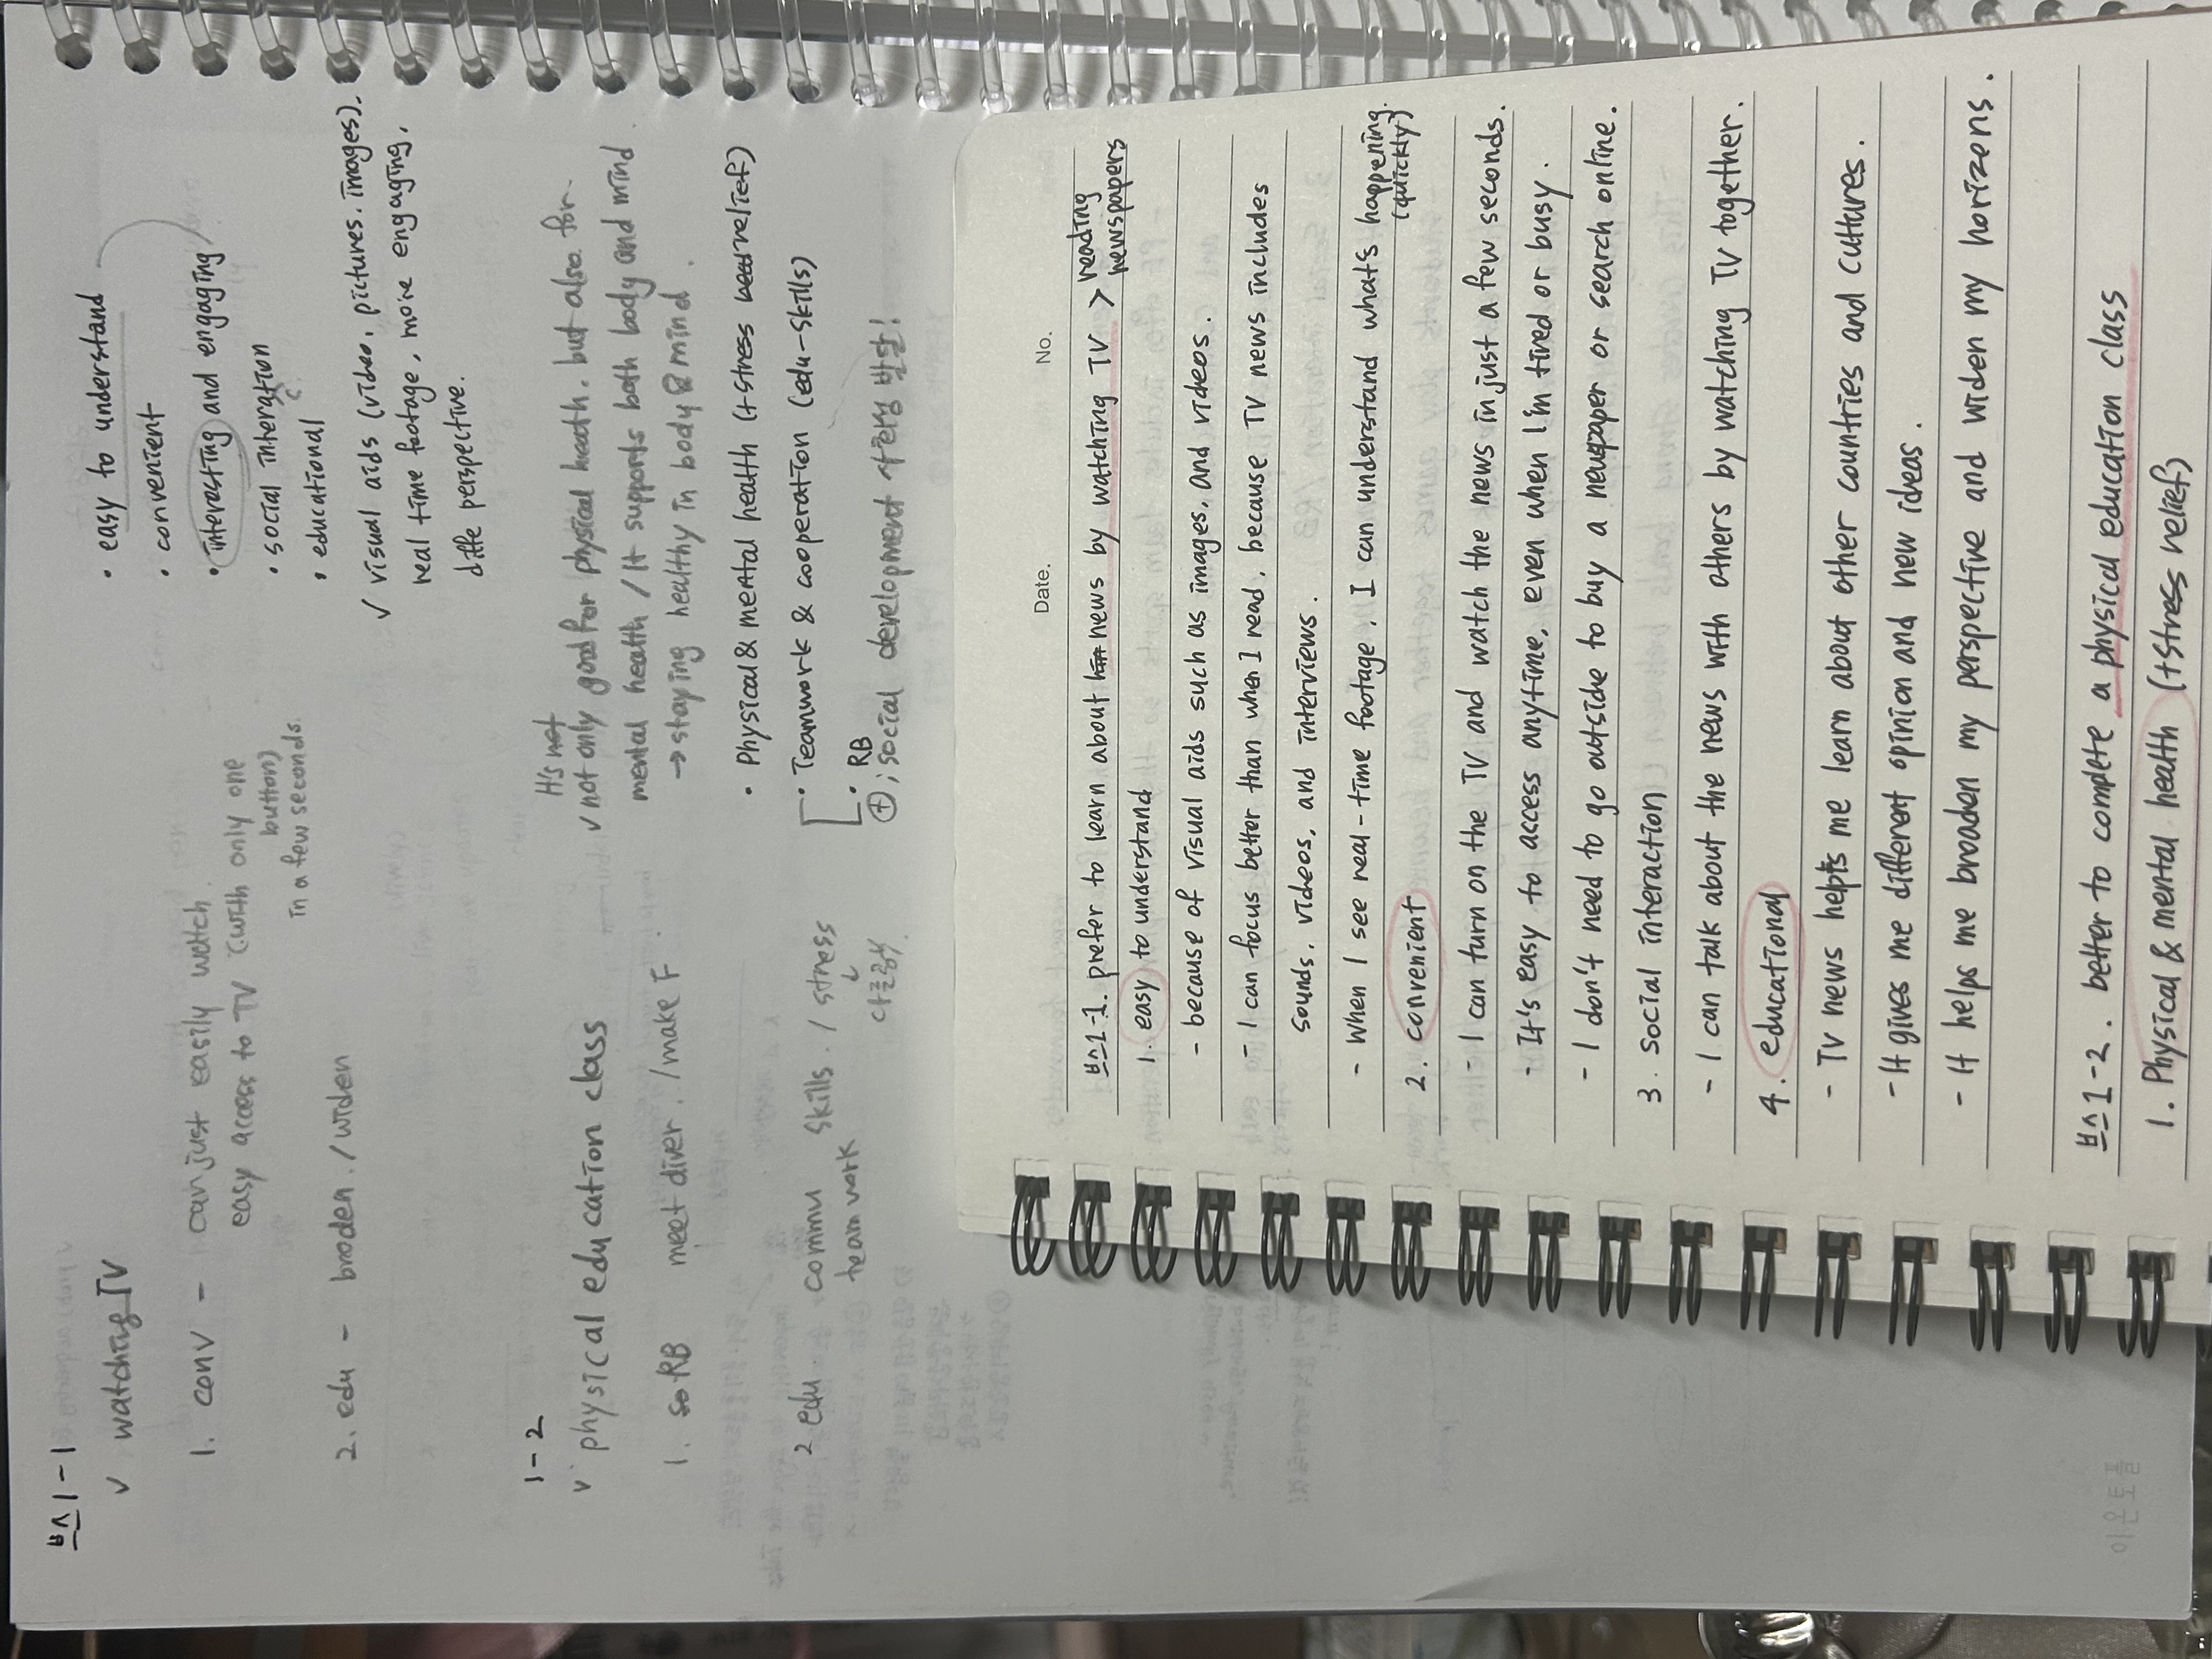 브스 1-1
✓ watching TV
1. conv - can just easily watch.
easy access to TV (with only one
button)
in a few seconds.
2. edu - broden. / widen
• easy to understand
• convenient
• interesting and engaging
• social interaction
• educational
✓ visual aids (video, pictures. images).
real time footage, more engaging,
diffe perspective.
1-2
✓ physical education class
1. RB meet diver. / make F.
2 edu commu skills. / stress
team work
It's not
✓ not only good for physical heath. but also for.
mental health / It supports both body and mind.
→ staying healthy in body & mind.
• Physical & mental health (+stress relief)
• Teamwork & cooperation (edu-skills)
• RB
⊕; social development 사회성 발달!
Date. No.
브스 1-1. prefer to learn about news by watching TV > reading
newspapers
1. easy to understand
- because of visual aids such as images, and videos.
- I can focus better than when I read, because TV news includes
sounds, videos, and interviews.
- When I see real-time footage, I can understand what's happening.
(quickly)
2. convenient
- I can turn on the TV and watch the news in just a few seconds.
- It's easy to access anytime, even when I'm tired or busy.
- I don't need to go outside to buy a newpaper or search online.
3. social interaction
- I can talk about the news with others by watching TV together.
4. educational
- TV news helps me learn about other countries and cultures.
- It gives me different opinion and new ideas.
- It helps me broaden my perspective and widen my horizons.
브스 1-2. better to complete a physical education class
1. Physical & mental health (+stress relief)